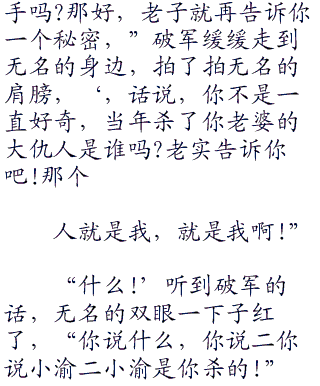 手吗?那好，老子就再告诉你
一个秘密，”破军缓缓走到
无名的身边，拍了拍无名的
肩膀，‘，话说，你不是一
直好奇，当年杀了你老婆的
大仇人是谁吗?老实告诉你
吧!那个
人就是我，就是我啊!”
“什么!’听到破军的
话，无名的双眼一下子红
了，“你说什么，你说二你
说小渝二小渝是你杀的!”